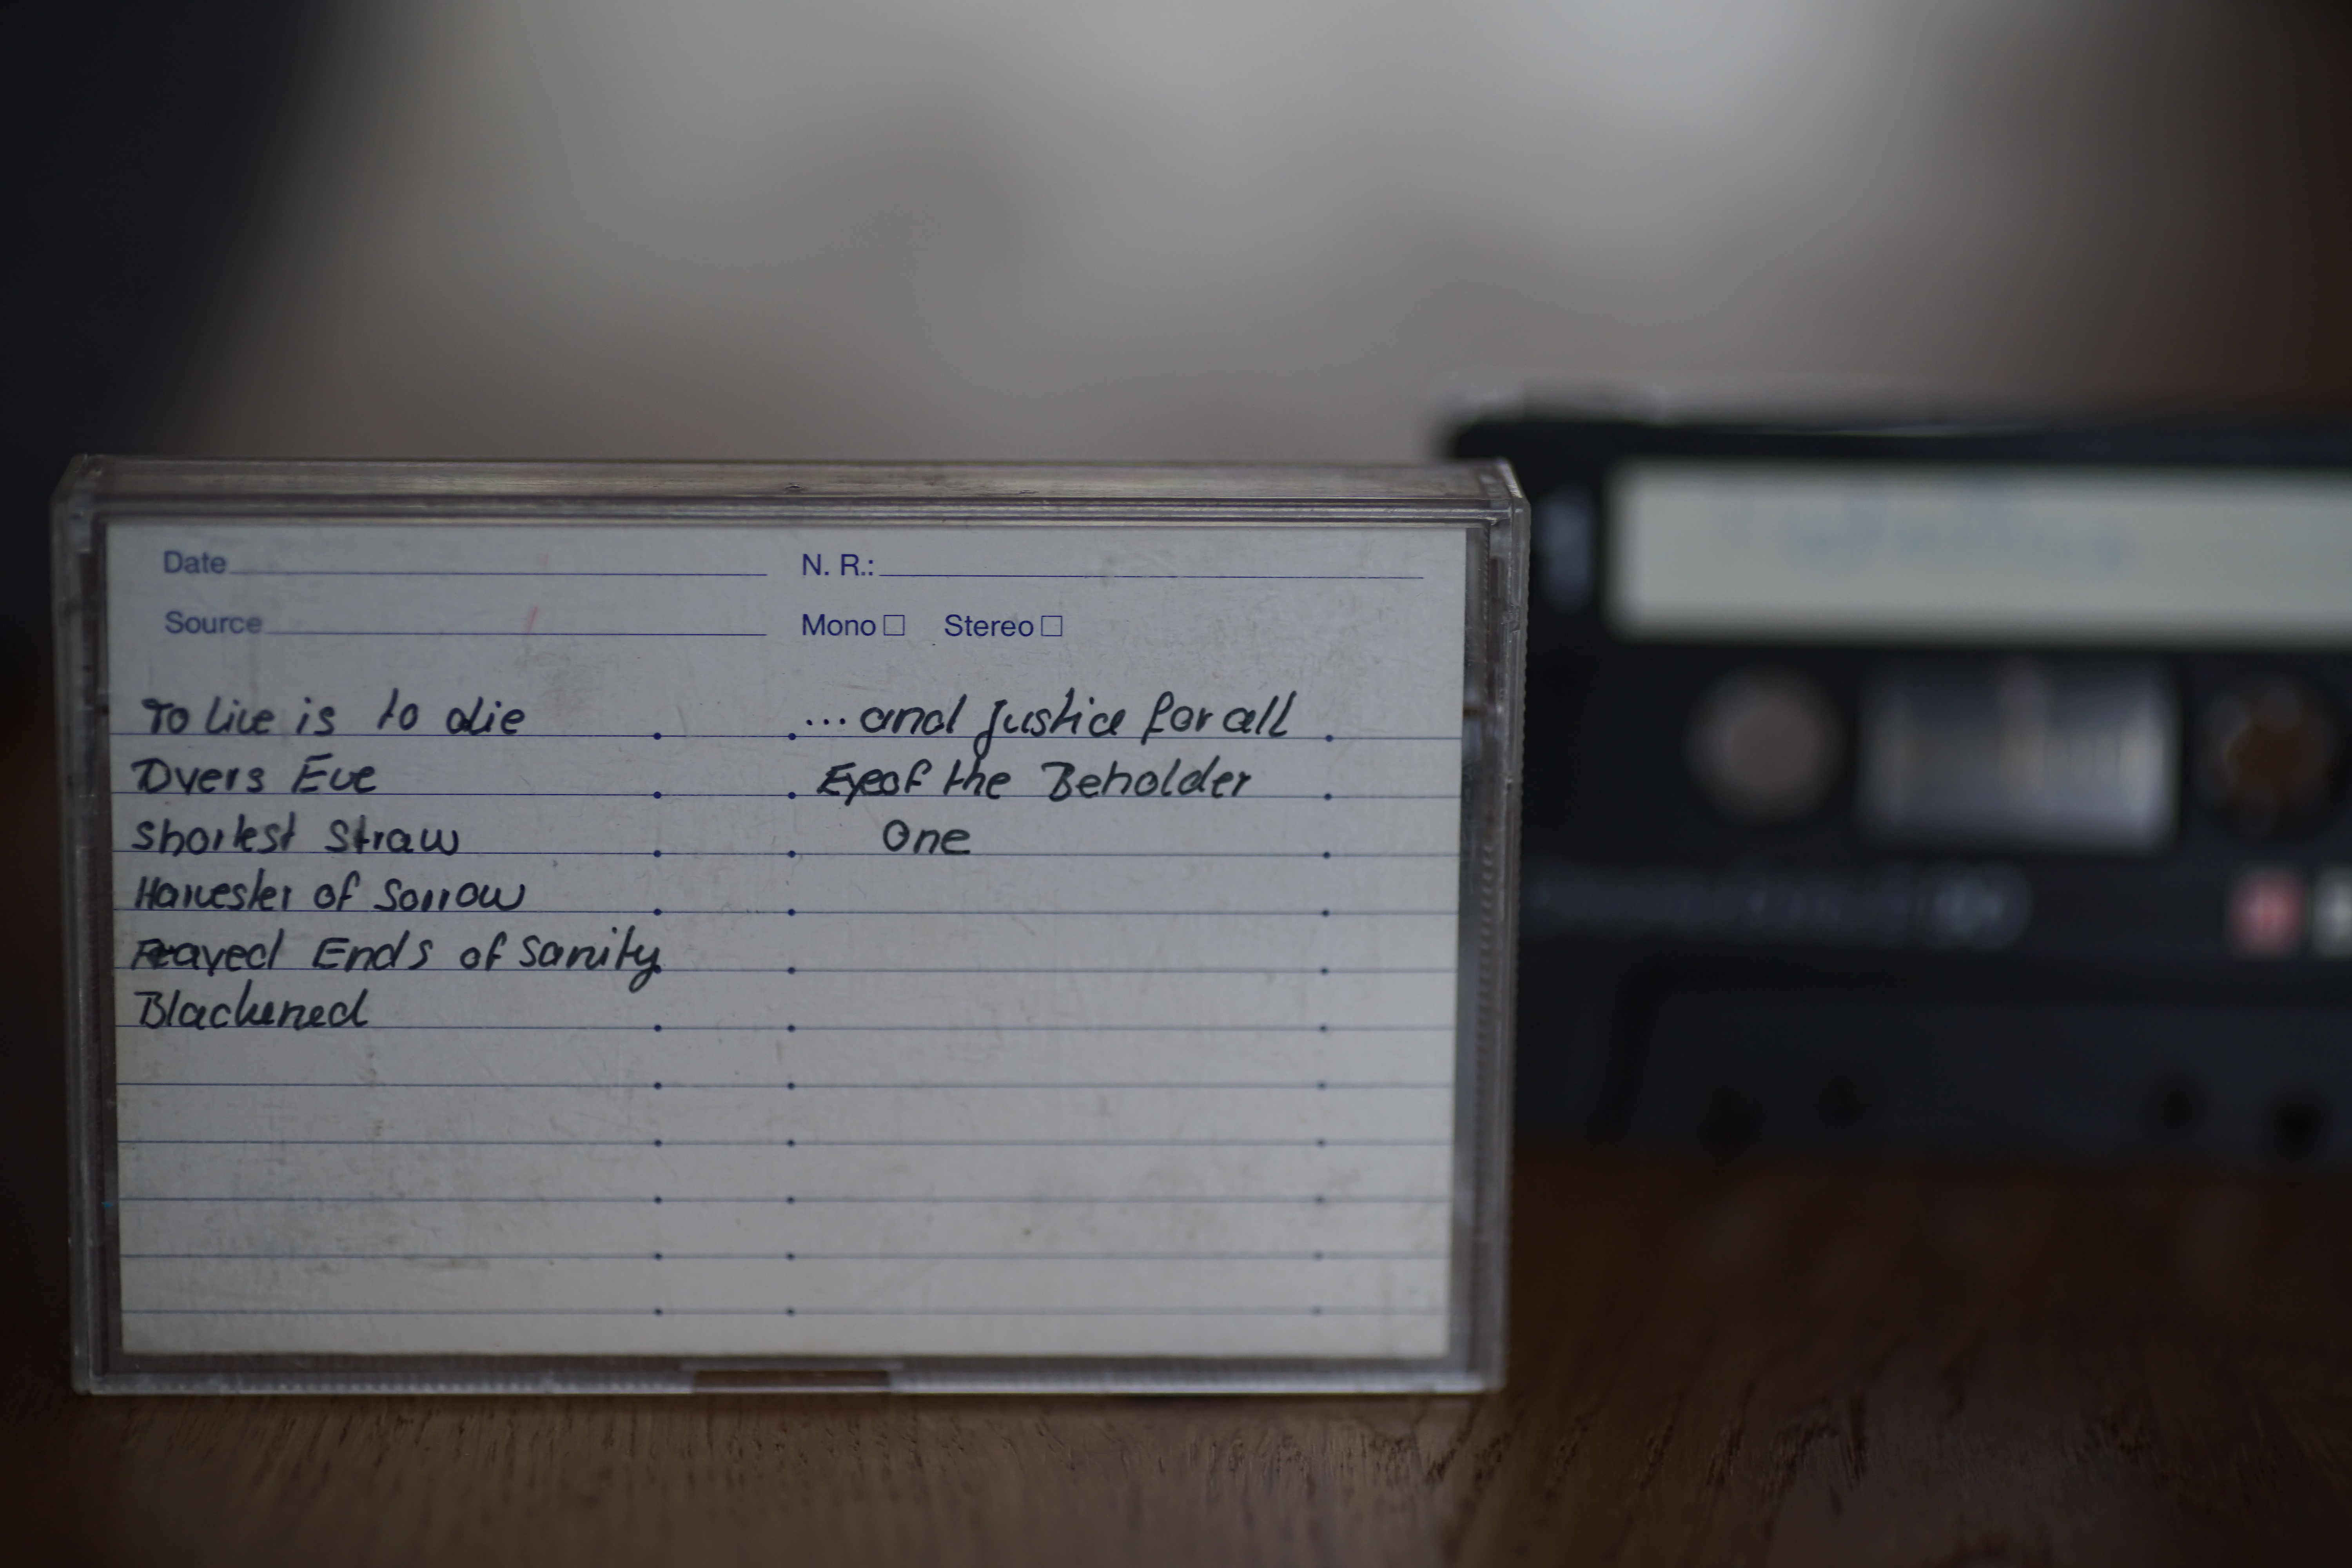 Date N. R.:
Source Mono Stereo
To live is to die
Dyers Eve
Shortest Straw
Harvester of Sorrow
Frayed Ends of Sanity
Blackened
... and Justice for all
Eye of the Beholder
One